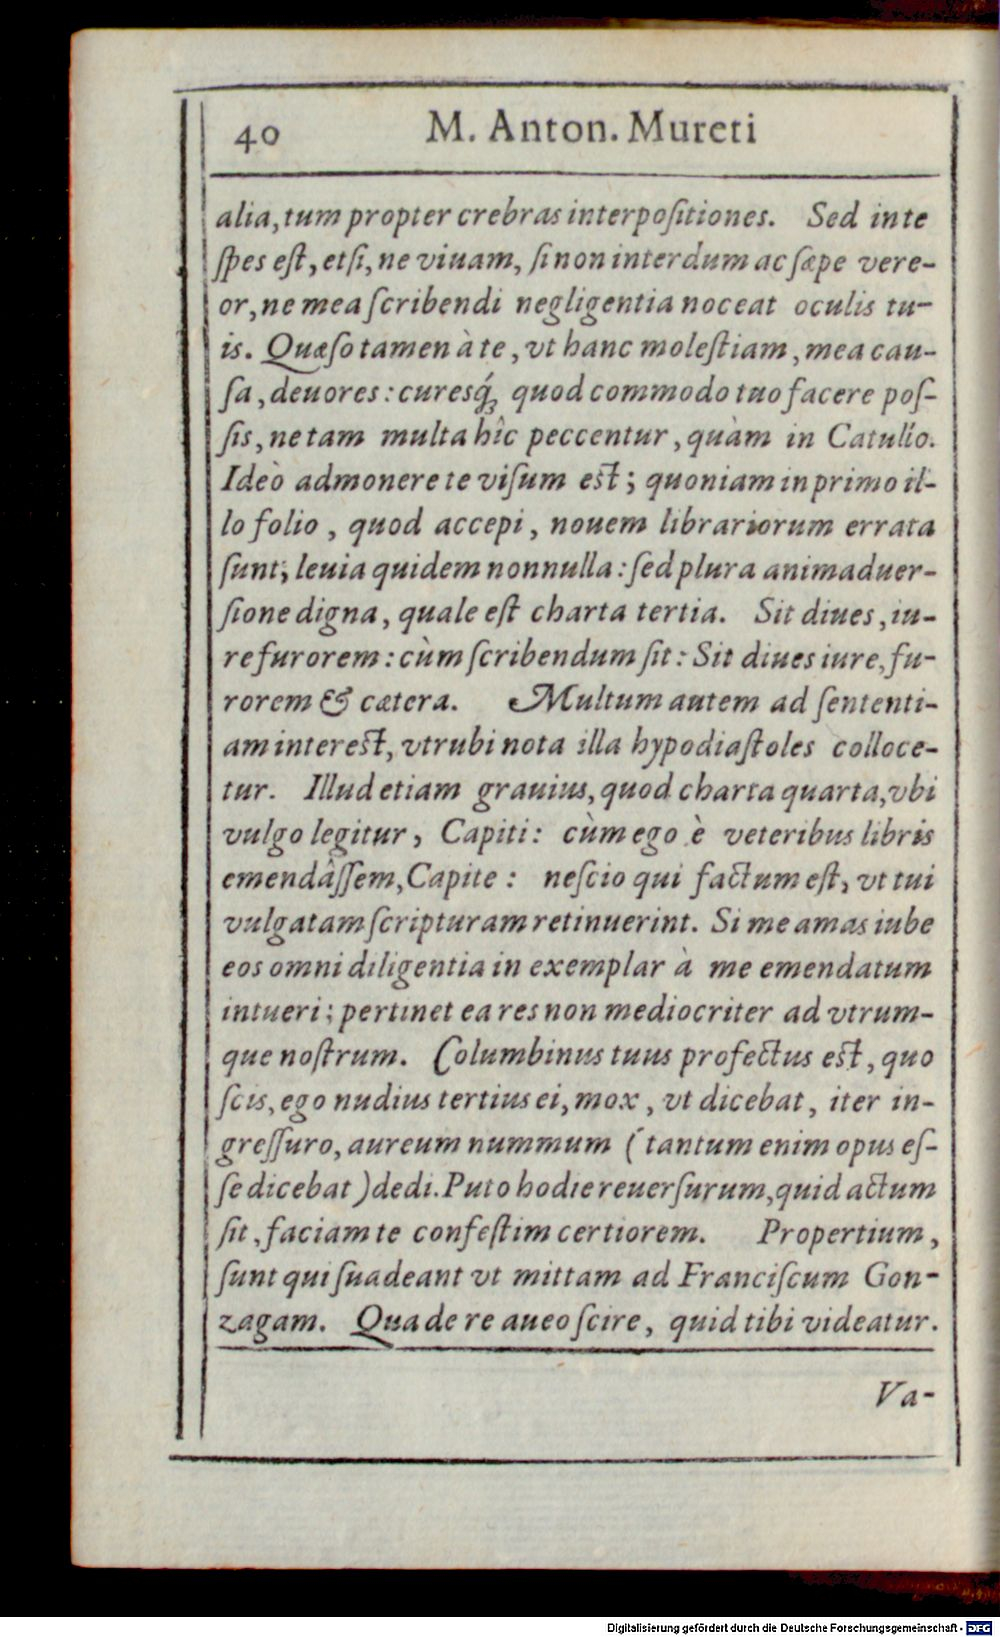 40 M. Anton. Mureti
alia, tum propter crebras interpoſitiones. Sed in te
ſpes eſt, etſi, ne viuam, ſi non interdum ac ſæpe vere-
or, ne mea ſcribendi negligentia noceat oculis tu-
is. Quæſo tamen à te, vt hanc moleſtiam, mea cau-
ſa, deuores: curesq́; quod commodo tuo facere poſ-
ſis, ne tam multa hîc peccentur, quàm in Catullo.
Ideò admonere te viſum eſt; quoniam in primo il-
lo folio, quod accepi, nouem librariorum errata
ſunt; leuia quidem nonnulla: ſed plura animaduer-
ſione digna, quale eſt charta tertia. Sit diues, iu-
re furorem: cùm ſcribendum ſit: Sit diues iure, fu-
rorem & cætera. Multum autem ad ſententi-
am intereſt, vtrubi nota illa hypodiaſtoles colloce-
tur. Illud etiam grauius, quod charta quarta, vbi
vulgo legitur, Capiti: cùm ego è veteribus libris
emendâſſem, Capite: neſcio qui factum eſt, vt tui
vulgatam ſcripturam retinuerint. Si me amas iube
eos omni diligentia in exemplar à me emendatum
intueri; pertinet ea res non mediocriter ad vtrum-
que noſtrum. Columbinus tuus profectus eſt, quo
ſcis, ego nudius tertius ei, mox, vt dicebat, iter in-
greſſuro, aureum nummum (tantum enim opus eſ-
ſe dicebat) dedi. Puto hodie reuerſurum, quid actum
ſit, faciam te confeſtim certiorem. Propertium,
ſunt qui ſuadeant vt mittam ad Franciſcum Gon-
zagam. Qua de re aueo ſcire, quid tibi videatur.
Va-
Digitalisierung gefördert durch die Deutsche Forschungsgemeinschaft - DFG